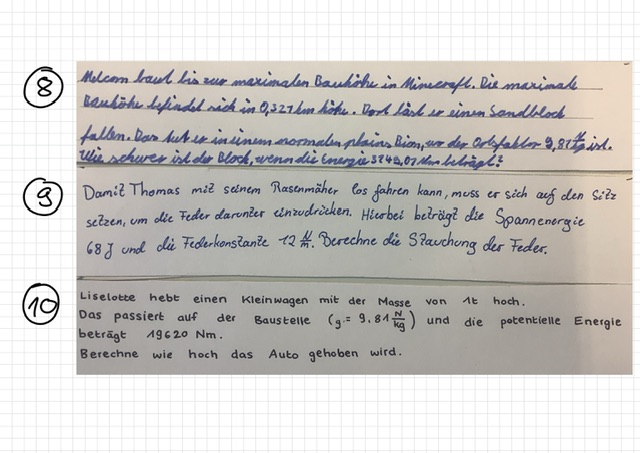 8
Melcom baut bis zur maximalen Bauhöhe in Minecraft. Die maximale
Bauhöhe befindet sich in 0,321 km höhe. Dort läst er einen Sandblock
fallen. Das tut er in einem normalen plains Biom, wo der Ortsfaktor 9,81 N/kg ist.
Wie schwer ist der Block, wenn die Energie beträgt?
9
Damit Thomas mit seinem Rasenmäher los fahren kann, muss er sich auf den Sitz
setzen, um die Feder darunter einzudrücken. Hierbei beträgt die Spannenergie
68 J und die Federkonstante 12 N/m. Berechne die Stauchung der Feder.
10
Liselotte hebt einen Kleinwagen mit der Masse von 1t hoch.
Das passiert auf der Baustelle (g = 9.81 N/kg) und die potentielle Energie
beträgt 19620 Nm.
Berechne wie hoch das Auto gehoben wird.